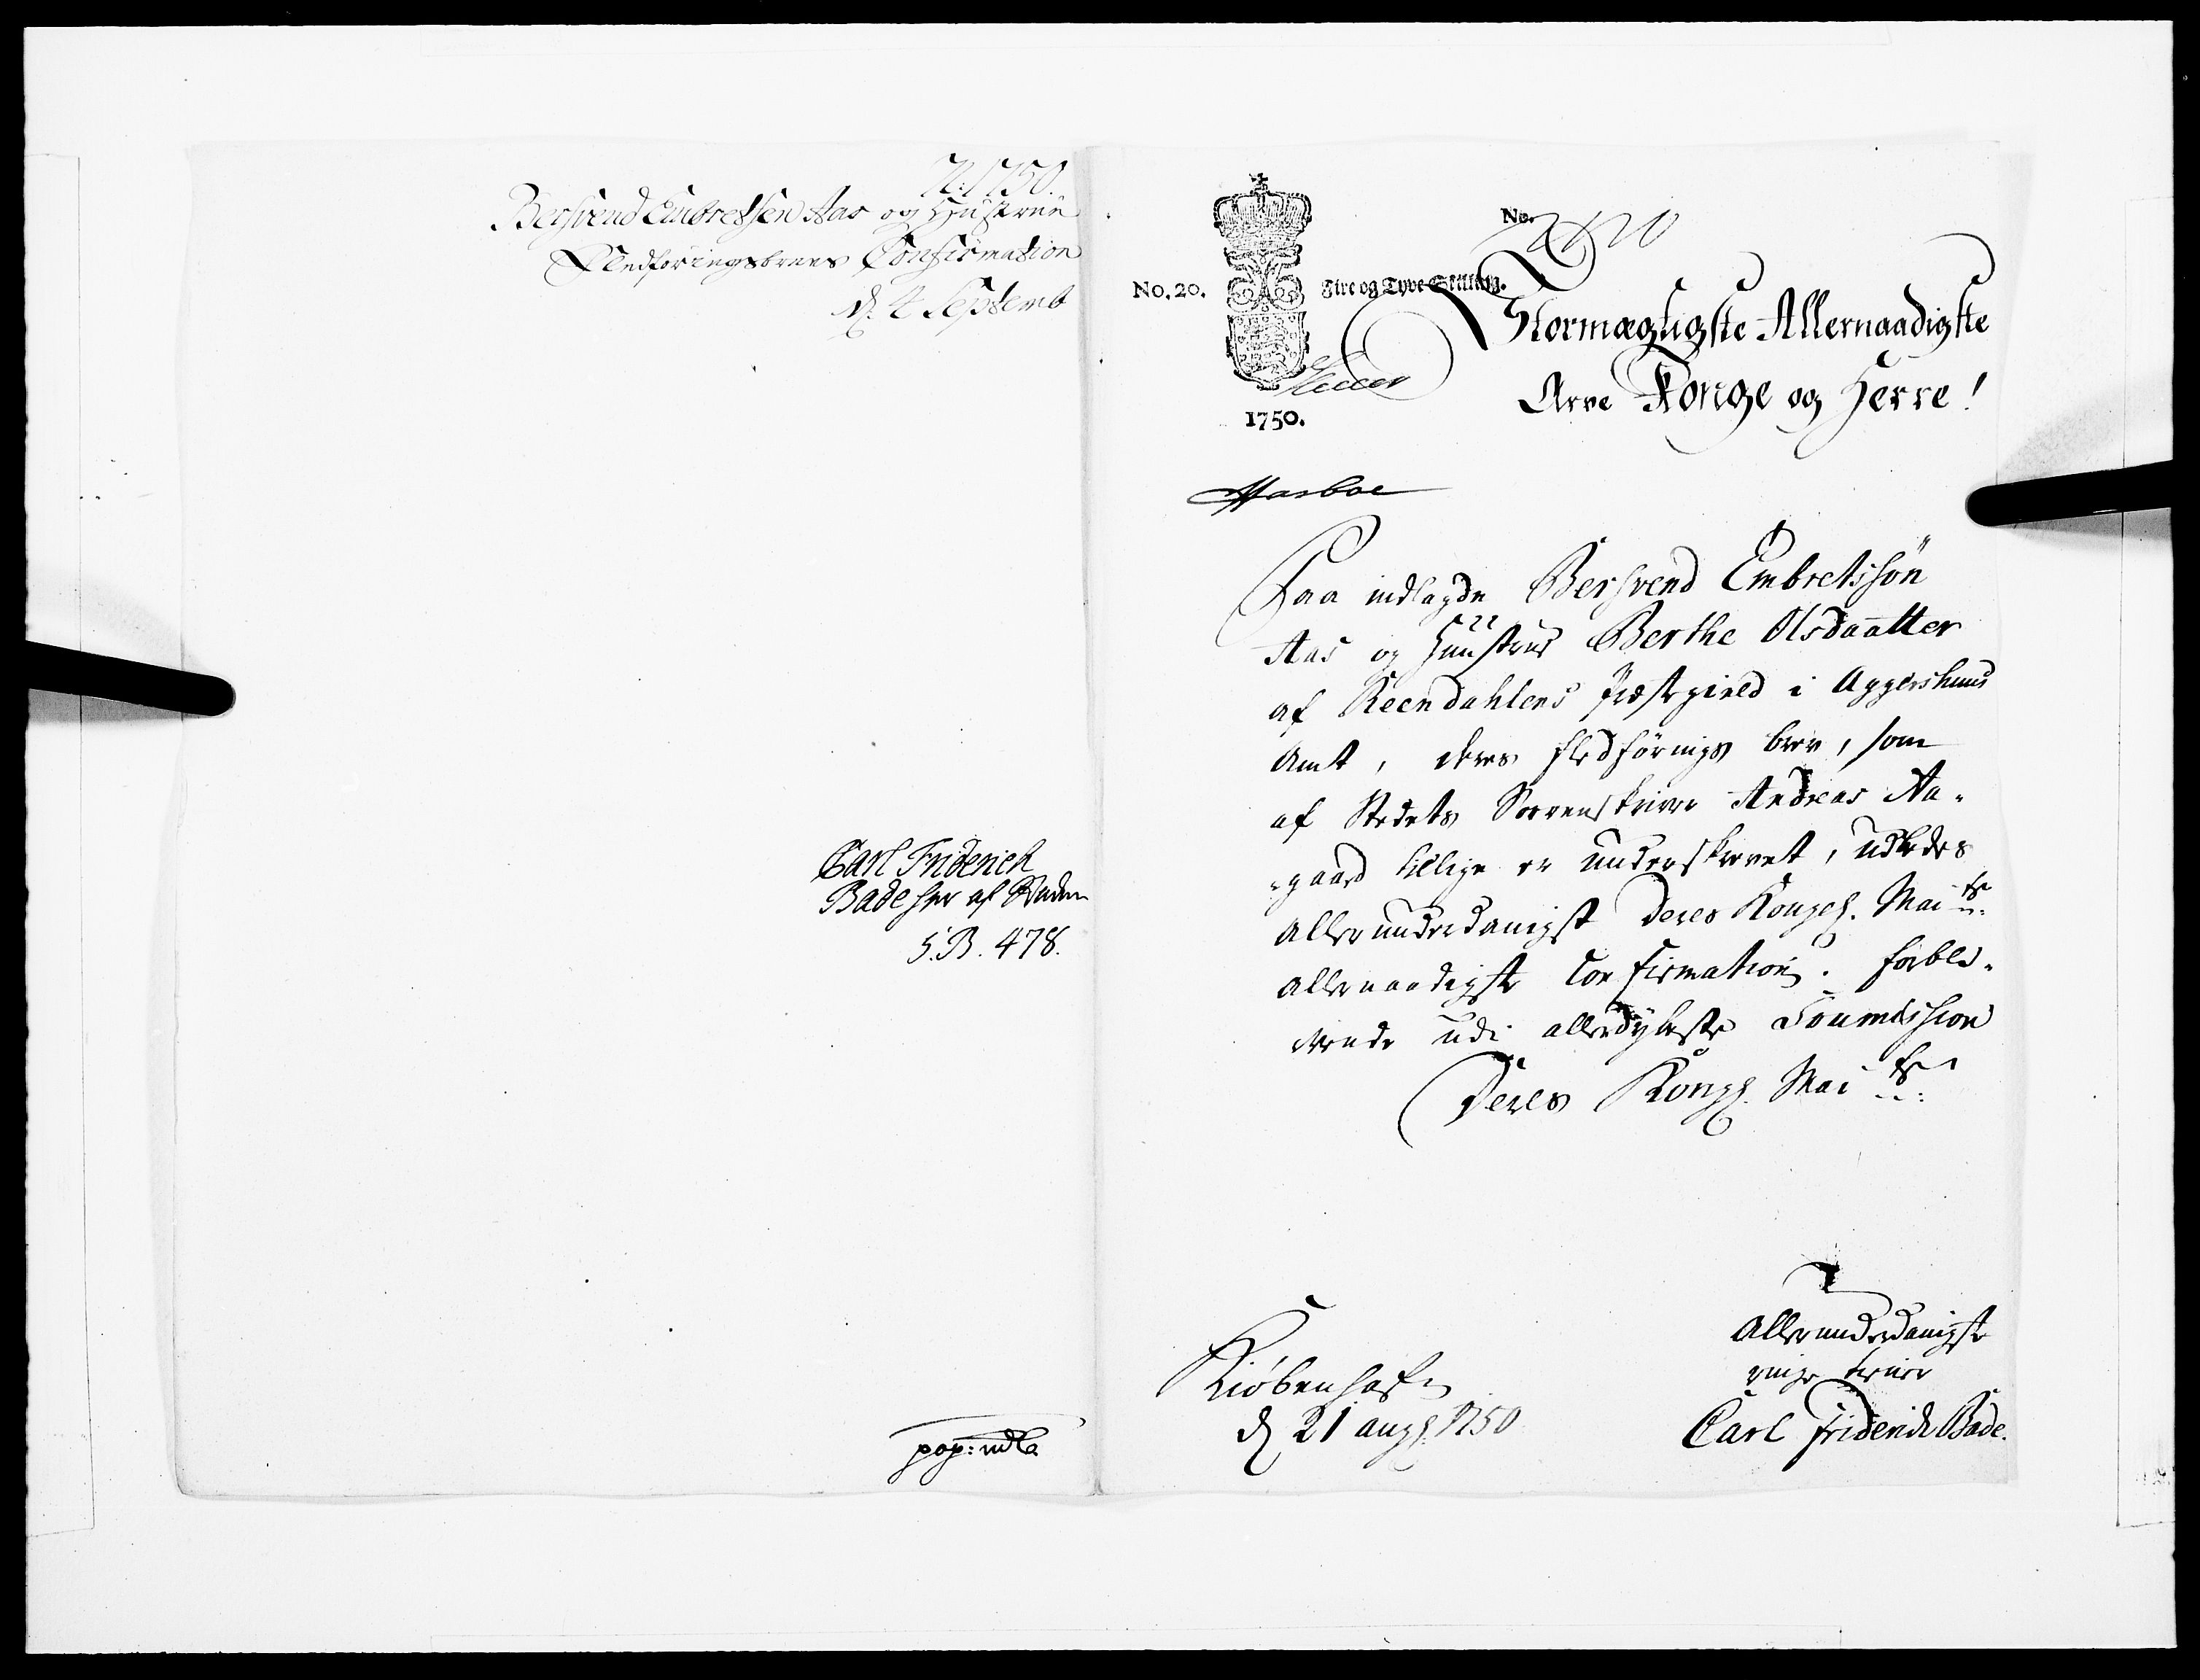 N: 1750.
Bersvend Embretsen Aas og Hustrue
Fledføringsbrevs Confirmation
d. 4 Septemb
Carl Friderich
Bade her af Staden
S.B. 478.
pap: indl.
No.
No. 20.
Fire og Tyve Skilling.
1750.
Stormægtigste Allernaadigste
Arve Konge og Herre!
Paa indlagde Bersvend Embretssøn
Aas og Huustrues Berthe Olsdaatter
af Reendahlens Præstegield i Aggershuus
Amt, deres fledførings brev, som
af Stedets Sorenskriver Andreas Aa-
-gaard tillige er underskrevet, udbedes
allerunderdanigst Deres Kongel. Mai.ts
allernaadigste Confirmation. forble-
vende udi allerdybeste Soumission
Deres Kongl. Mai.ts
Allerunderdanigste
ringe tiener
Carl Friderich Bade.
Kiøbenhafn
d 21 aug: 1750